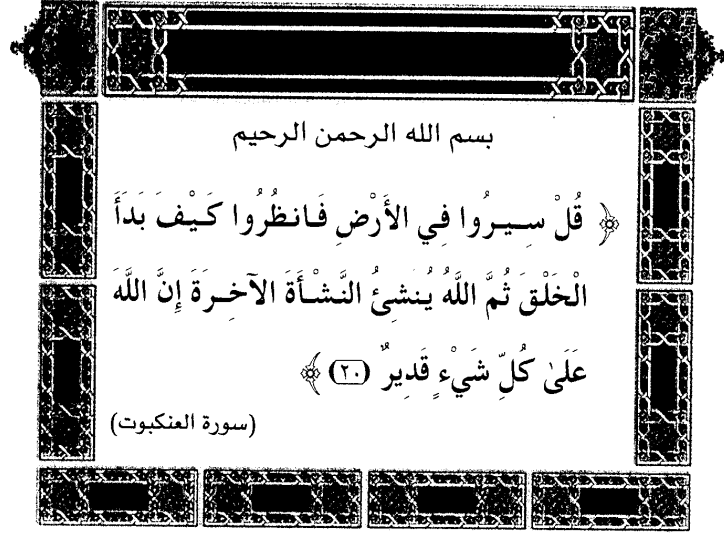 بسم الله الرحمن الرحيم
﴿ قُلْ سِيرُوا فِي الأَرْضِ فَانظُرُوا كَيْفَ بَدَأَ
الْخَلْقَ ثُمَّ اللَّهُ يُنشِئُ النَّشْأَةَ الآخِرَةَ إِنَّ اللَّهَ
عَلَىٰ كُلِّ شَيْءٍ قَدِيرٌ (٢٠) ﴾
(سورة العنكبوت)